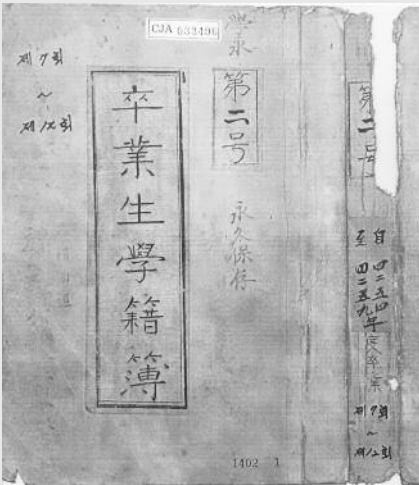 CJA 033496
제7회
~
제12회
卒業生學籍簿
學永
第二号
永久保存
第二号
自 四二五四
至 四二五九年度卒業
제7회
~
제12회
1402 1